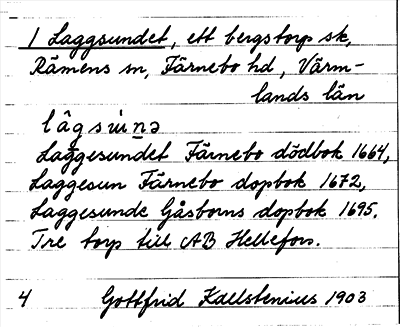 1 Laggsundet, ett bergstorp sk,
Rämens sn, Färnebo hd, Värm-
lands län
lâgsùnə
Laggesundet Färnebo dödbok 1664,
Laggesun Färnebo dopbok 1672,
Laggesunde Gåsborns dopbok 1695.
Tre torp till AB Hellefors.
4 Gottfrid Kallstenius 1903